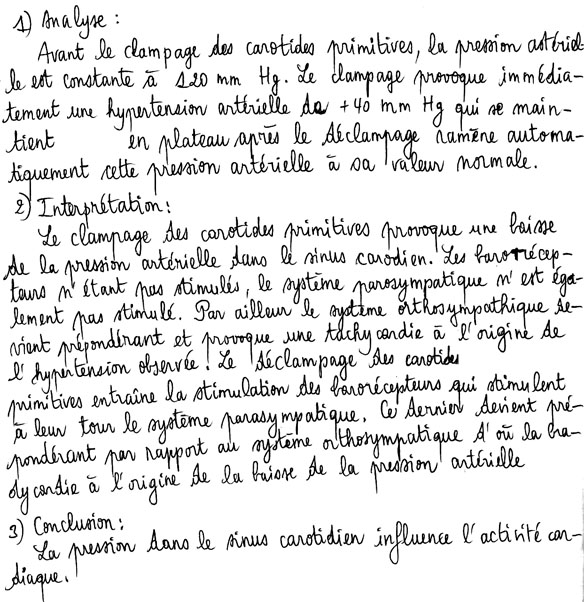 1) Analyse :
Avant le clampage des carotides primitives, la pression artériel-
le est constante à 120 mm Hg. Le clampage provoque immédia-
tement une hypertension artérielle de +40 mm Hg qui se main-
tient en plateau après le déclampage ramène automa-
tiquement cette pression artérielle à sa valeur normale.
2) Interprétation :
Le clampage des carotides primitives provoque une baisse
de la pression artérielle dans le sinus carodien. Les barorécep-
teurs n'étant pas stimulés, le système parasympatique n'est éga-
lement pas stimulé. Par ailleur le système orthosympathique de-
vient prépondérant et provoque une tachycardie à l'origine de
l'hypertension observée. Le déclampage des carotides
primitives entraîne la stimulation des barorécepteurs qui stimulent
à leur tour le système parasympatique. Ce dernier devient pré-
pondérant par rapport au système orthosympatique d'où la bra-
dycardie à l'origine de la baisse de la pression artérielle
3) Conclusion :
La pression dans le sinus carotidien influence l'activité car-
diaque.